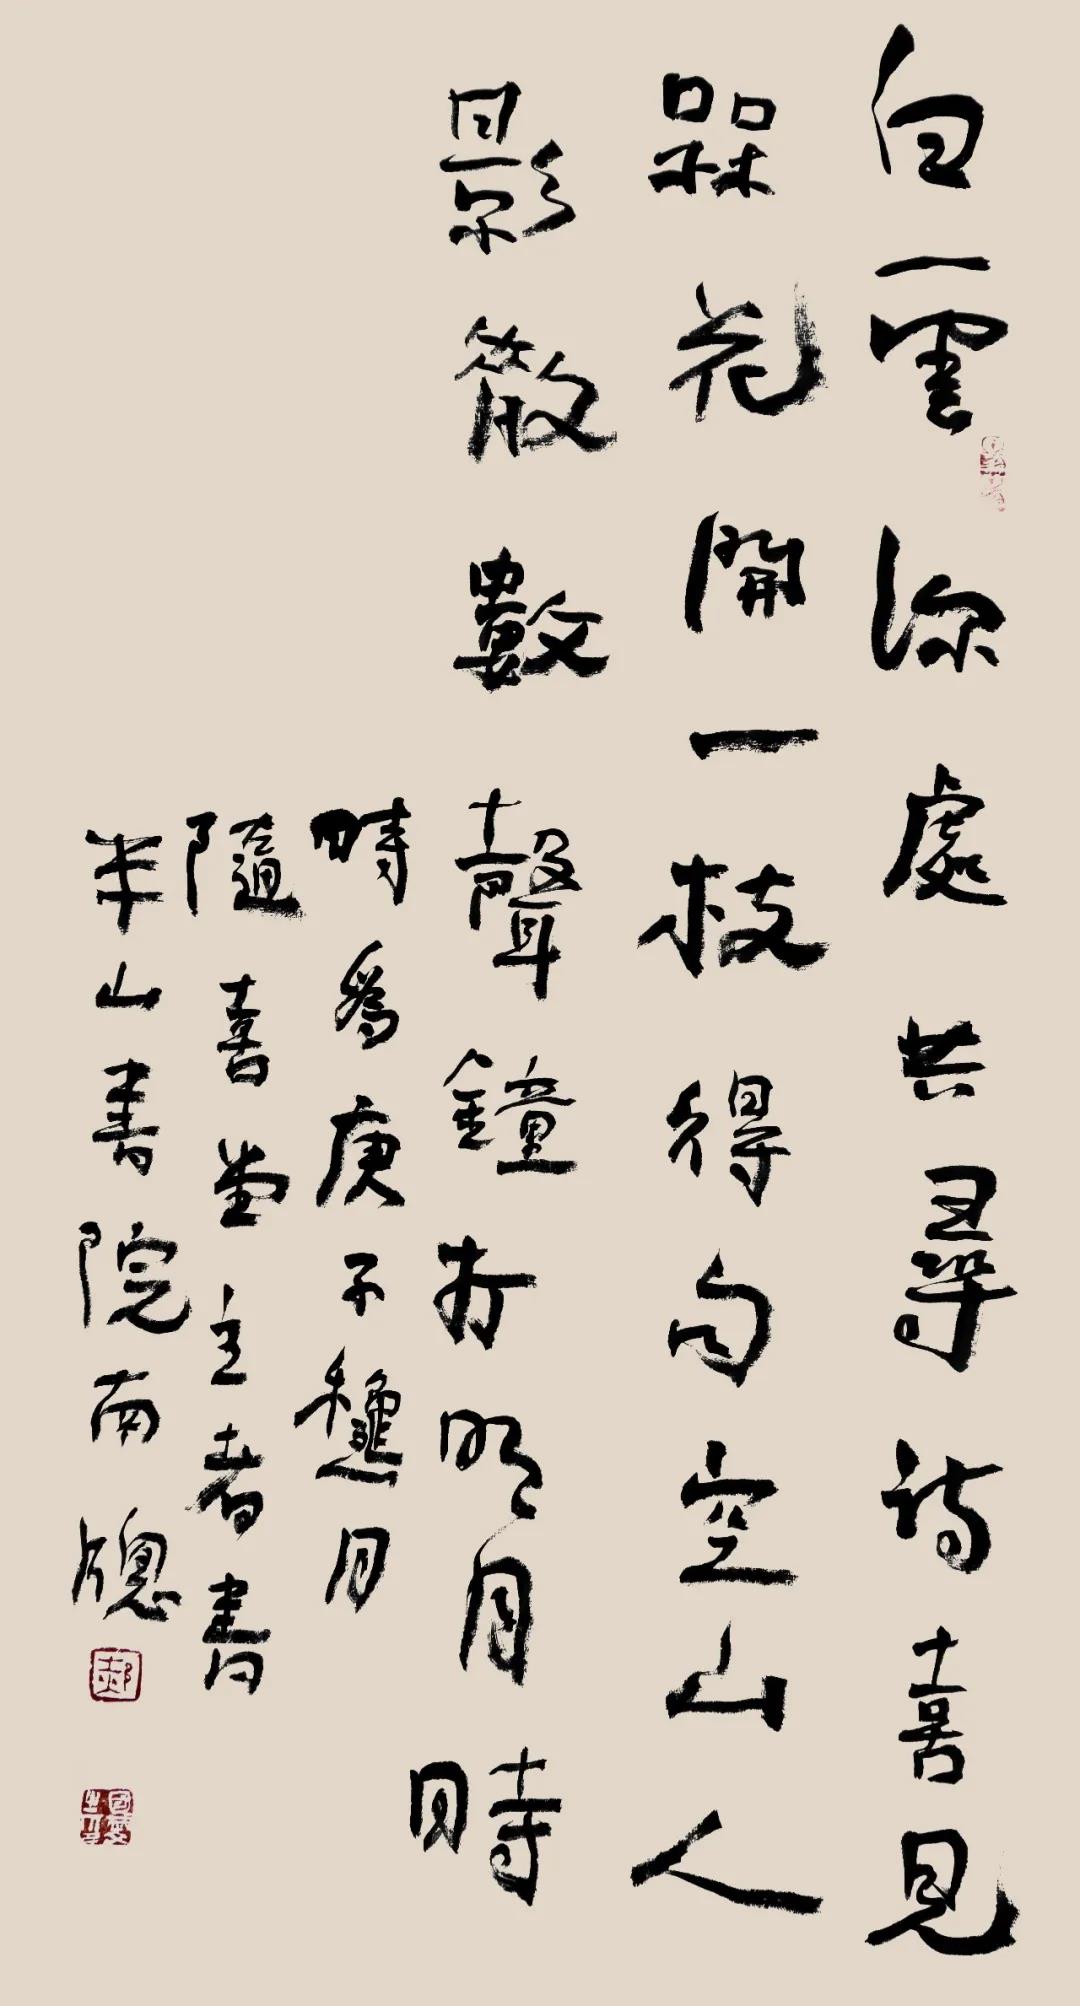 白雲深處共尋詩喜見
槑花開一枝得句空山人
影散數聲鐘打明月時
時為庚子龝月
隨喜堂主者書
半山書院南牕
郝